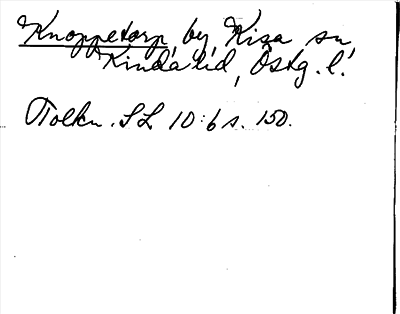 Knoppetorp, by, Kisa sn,
Kinda hd, Östg. l.
Tolkn. SL 10:6 s. 150.